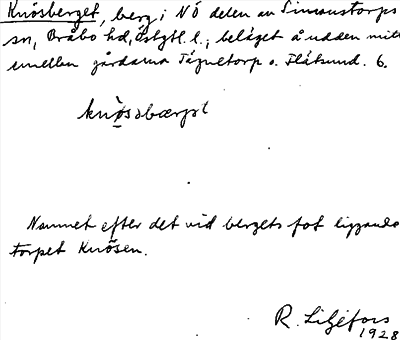 Knösberget, berg i NÖ delen av Simonstorps
sn, Bråbo hd, Östgtl. l., beläget å udden mitt
emellan gårdarna Tägneltorp o. Flåsund. 6.
knò̀sbærjət
Namnet efter det vid bergets fot liggande
torpet Knösen.
R. Liljefors
1928